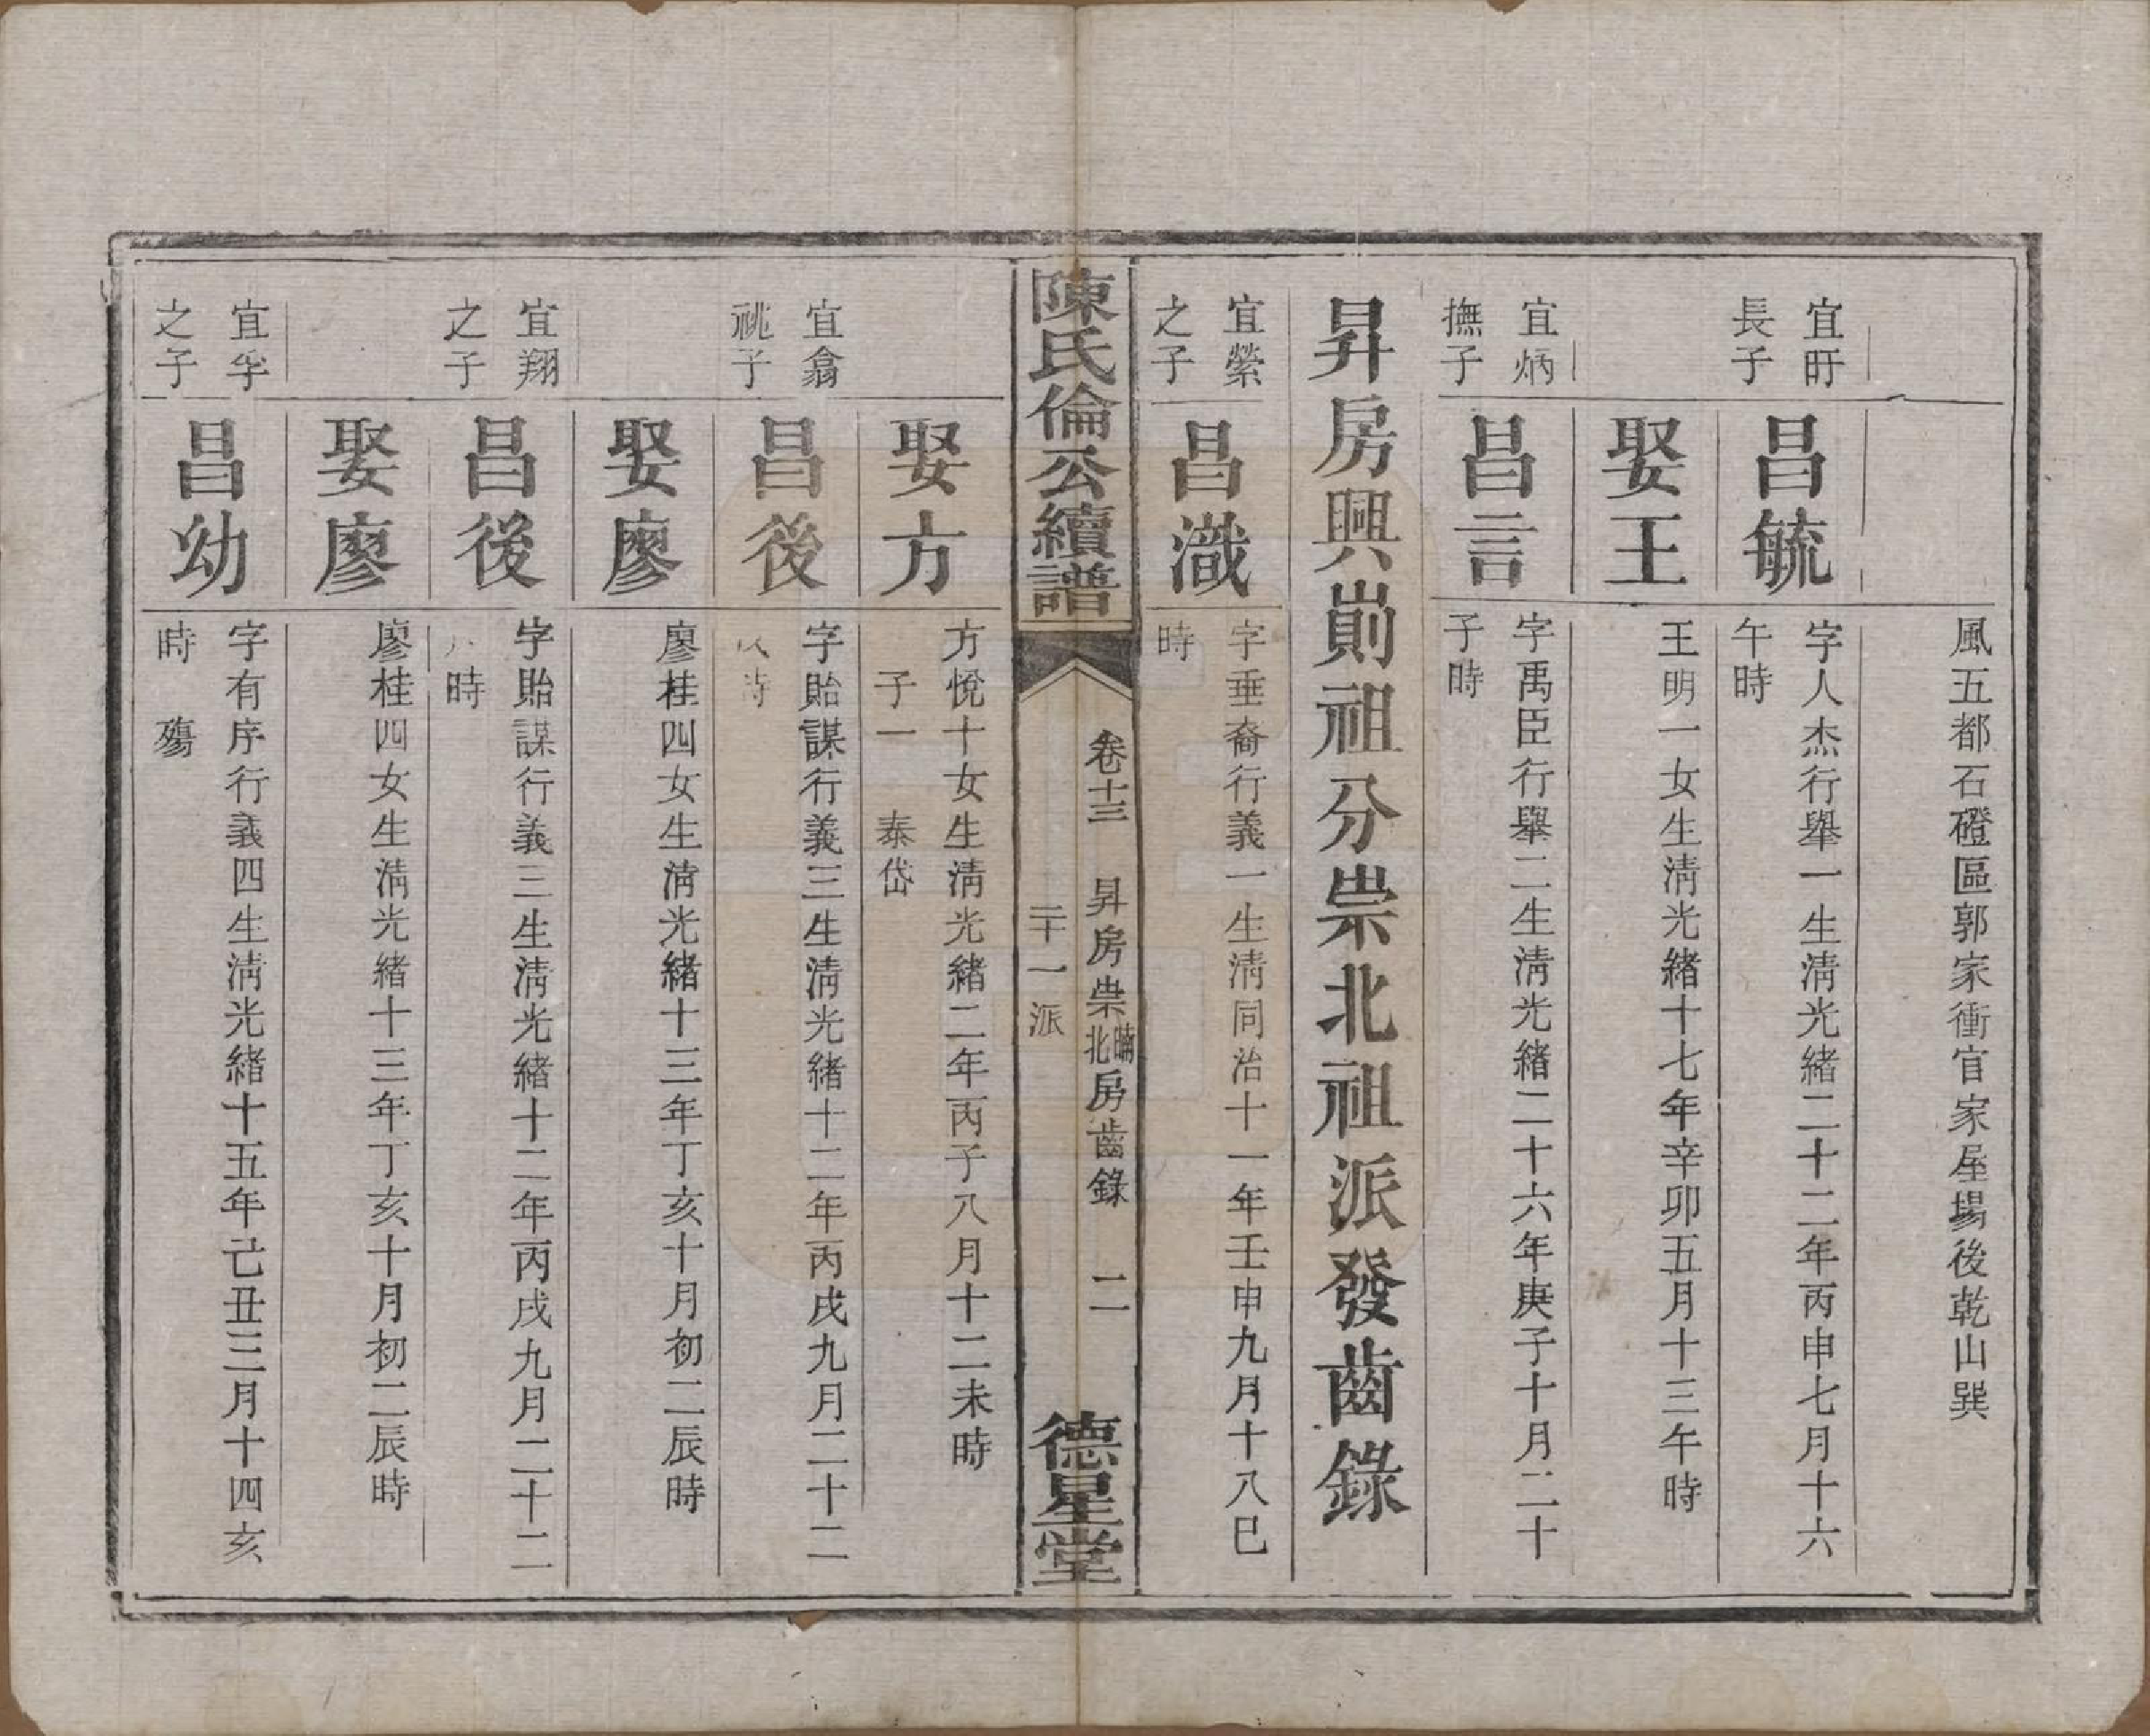 風五都石磴區郭家衝官家屋場後乾山巽
宜盱
長子
昌毓
字人杰行舉一生淸光緒二十二年丙申七月十六
午時
娶王
王明一女生淸光緒十七年辛卯五月十三午時
宜炳
撫子
昌言
字禹臣行舉二生淸光緒二十六年庚子十月二十
子時
昇房興崱祖分祟北祖派發齒錄
宜縈
之子
昌濈
字垂裔行義一生淸同治十一年壬申九月十八巳
時
陳氏倫公續譜
卷十三 昇房祟北房齒錄 二
二十一派
德星堂
娶方
方悅十女生淸光緒二年丙子八月十二未時
子一 泰岱
宜翕
祧子
昌後
字貽謀行義三生淸光緒十二年丙戌九月二十二
時
娶廖
廖桂四女生淸光緒十三年丁亥十月初二辰時
宜翔
之子
昌後
字貽謀行義三生淸光緒十二年丙戌九月二十二
時
娶廖
廖桂四女生淸光緒十三年丁亥十月初二辰時
宜孚
之子
昌幼
字有序行義四生淸光緒十五年己丑三月十四亥
時 殤